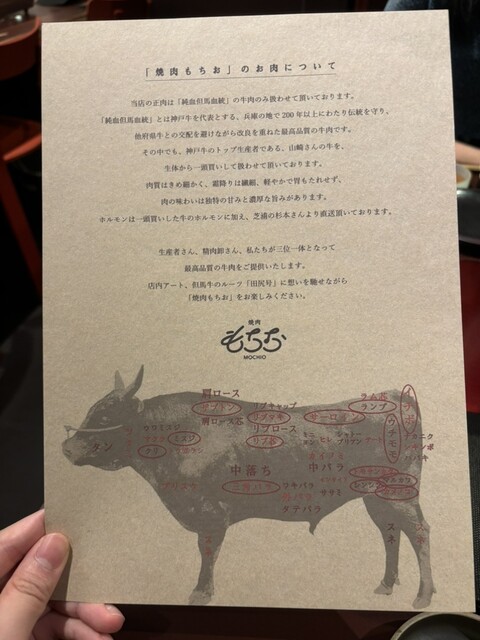 「焼肉もちお」のお肉について
当店の正肉は「純血但馬血統」の牛肉のみ扱わせて頂いております。
「純血但馬血統」とは神戸牛を代表とする、兵庫の地で200年以上にわたり伝統を守り、
他府県牛との交配を避けながら改良を重ねた最高品質の牛肉です。
その中でも、神戸牛のトップ生産者である、山崎さんの牛を、
生体から一頭買いして扱わせて頂いております。
肉質はきめ細かく、霜降りは繊細、軽やかで胃もたれせず、
肉の味わいは独特の甘みと濃厚な旨みがあります。
ホルモンは一頭買いした牛のホルモンに加え、芝浦の杉本さんより直送頂いております。
生産者さん、精肉卸さん、私たちが三位一体となって
最高品質の牛肉をご提供いたします。
店内アート、但馬牛のルーツ「田尻号」に想いを馳せながら
「焼肉もちお」をお楽しみください。
焼肉
もちお
MOCHIO
肩ロース
ザブトン
リブキャップ
リブマキ
リブロース
リブ芯
サーロイン
ラム芯
ランプ
イチボ
ウチモモ
タン
ウワミスジ
ミスジ
クリ
ブリスケ
中落ち
三角バラ
ヒレ
シャトーブリアン
中バラ
ササミ
タテバラ
スネ
スネ